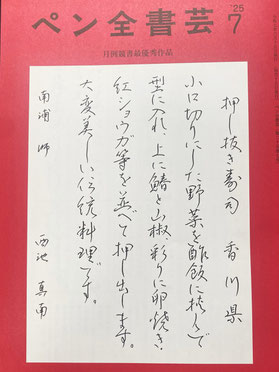 ペン全書芸
'25
7
月例競書最優秀作品
押し抜き寿司 香川県
小口切りにした野菜を酢飯に挟んで
型に入れ、上に鰆と山椒彩りに卵焼き、
紅ショウガ等を並べて押し出します。
大変美しい伝統料理です。
南浦 師
西池 真南